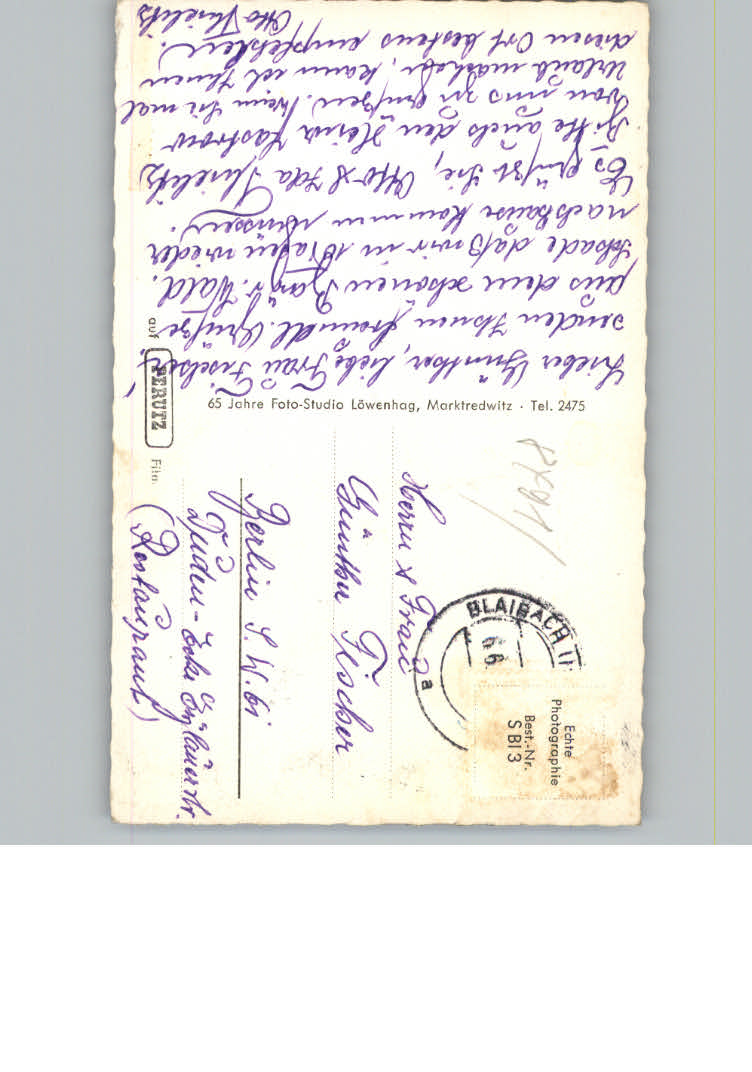 Lieber Günther, liebe Frau Fischer!
senden Ihnen freundl. Grüße
aus dem schönen Bayr. Wald.
Schade daß wir in 10 Tagen wieder
nachhause kommen müssen.
Es grüßt Sie, Otto & Ida
Bitte auch den Heinz Kastrow
von uns zu grüßen. Wenn Sie mal
Urlaub machen, kann ich Ihnen
diesen Ort bestens empfehlen.
Otto
65 Jahre Foto-Studio Löwenhag, Marktredwitz · Tel. 2475
auf PERUTZ Film
8491
BLAIBACH
66
a
Echte
Photographie
Best.-Nr.
SBI 3
Herrn & Frau
Günther Fischer
Berlin S.W. 61
Duden- Ecke
(Restaurant)